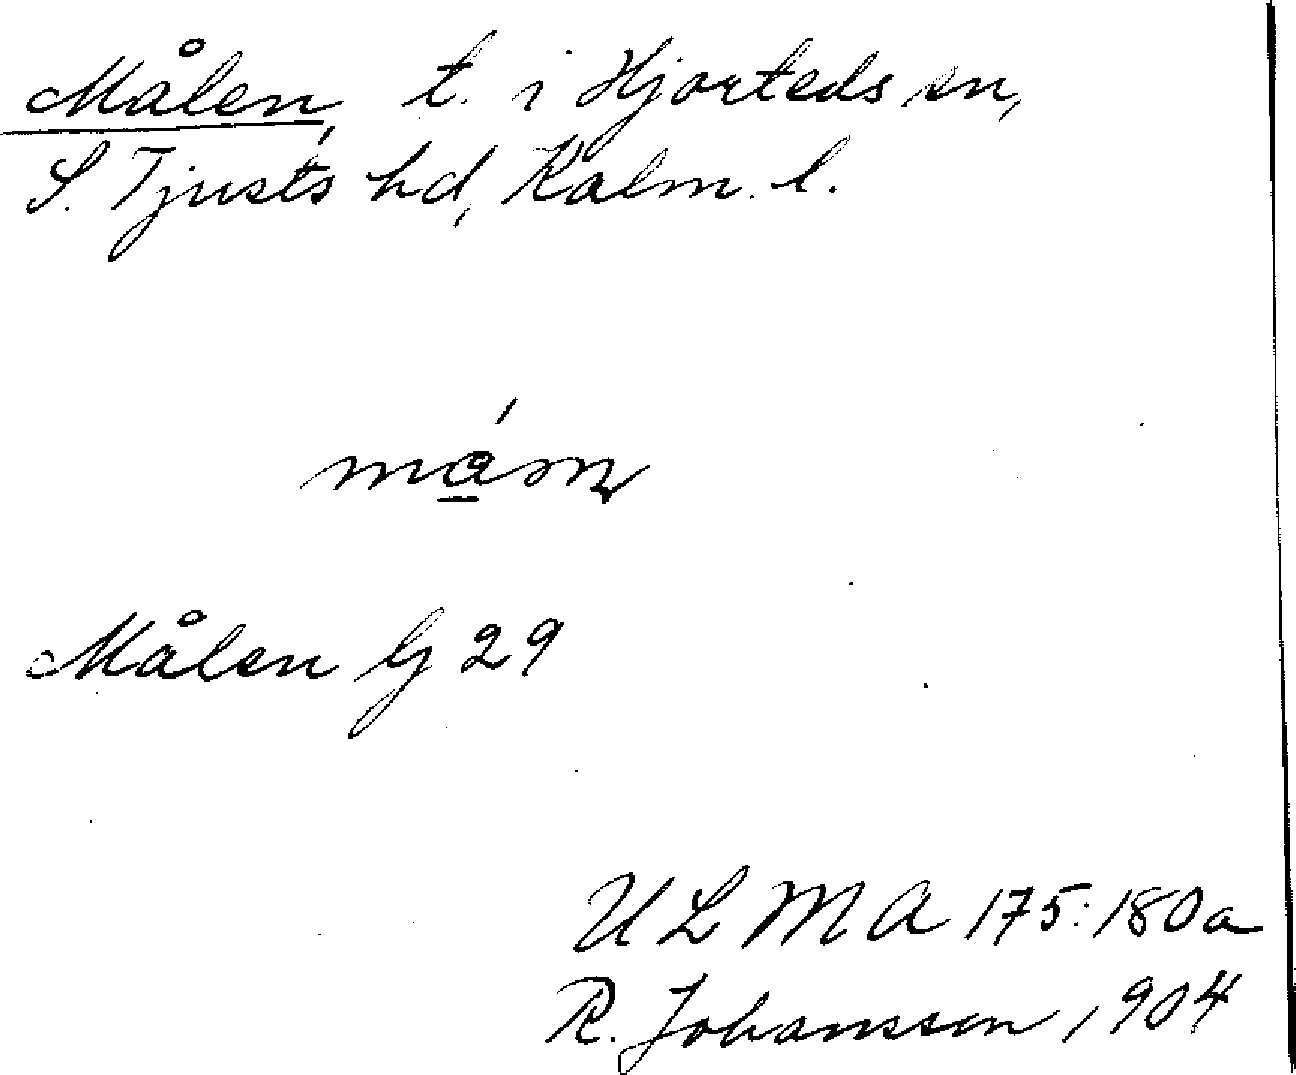 Målen, t. i Hjorteds sn,
S. Tjusts hd, Kalm. l.
Målen G 29
ULMA 175:180a
R. Johansson 1904